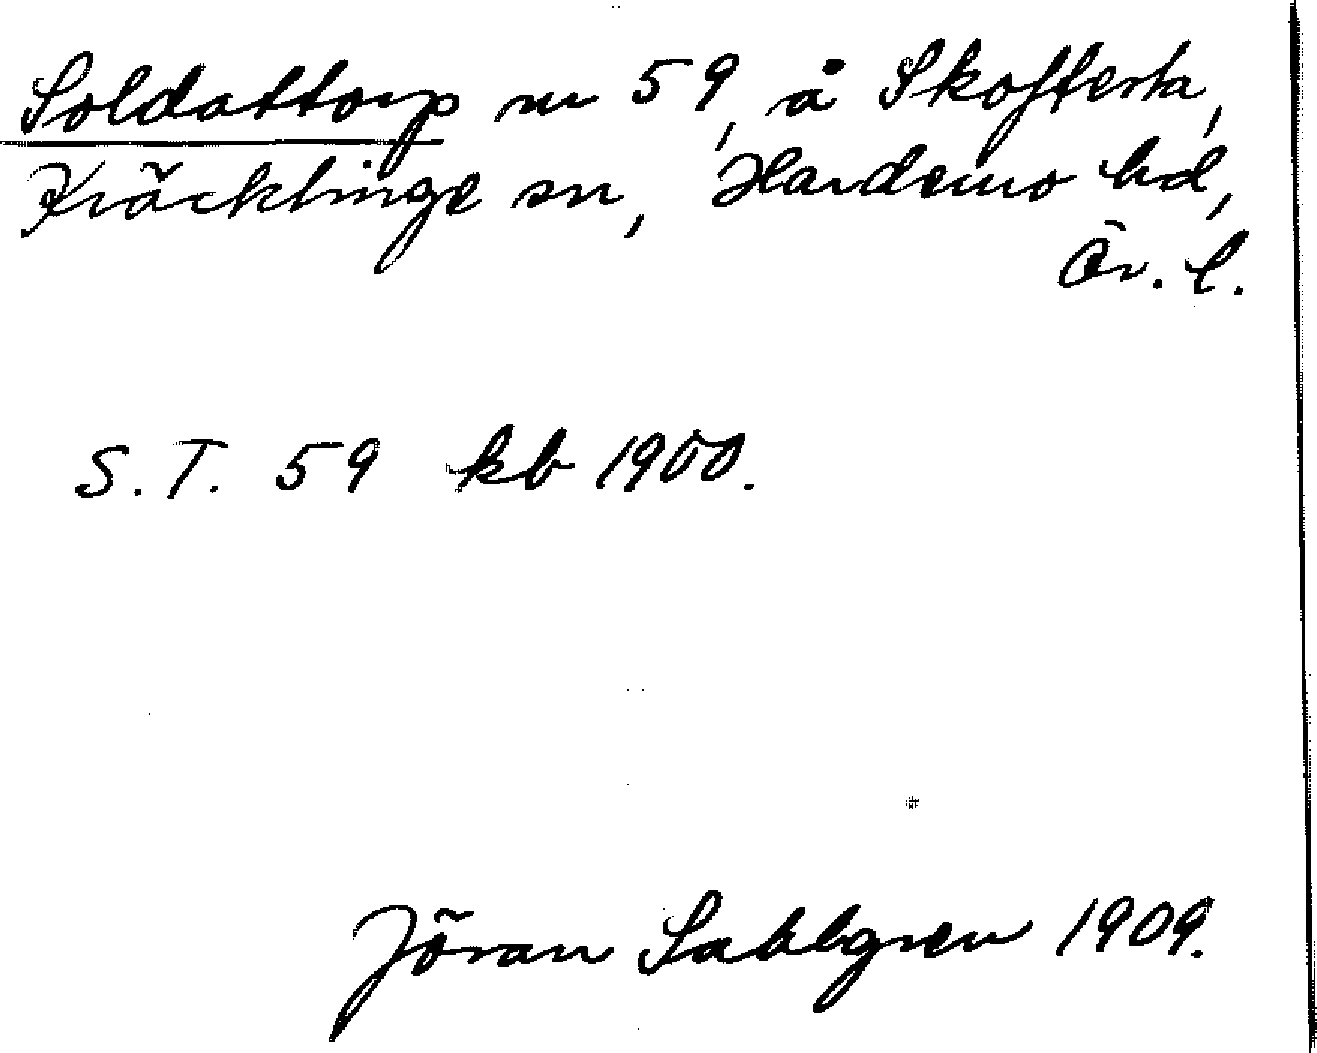 Soldattorp nr 59, å Skofterta,
Kräcklinge sn, Hardemo hd,
Ör. l.
S. T. 59 kb 1900.
Jöran Sahlgren 1909.